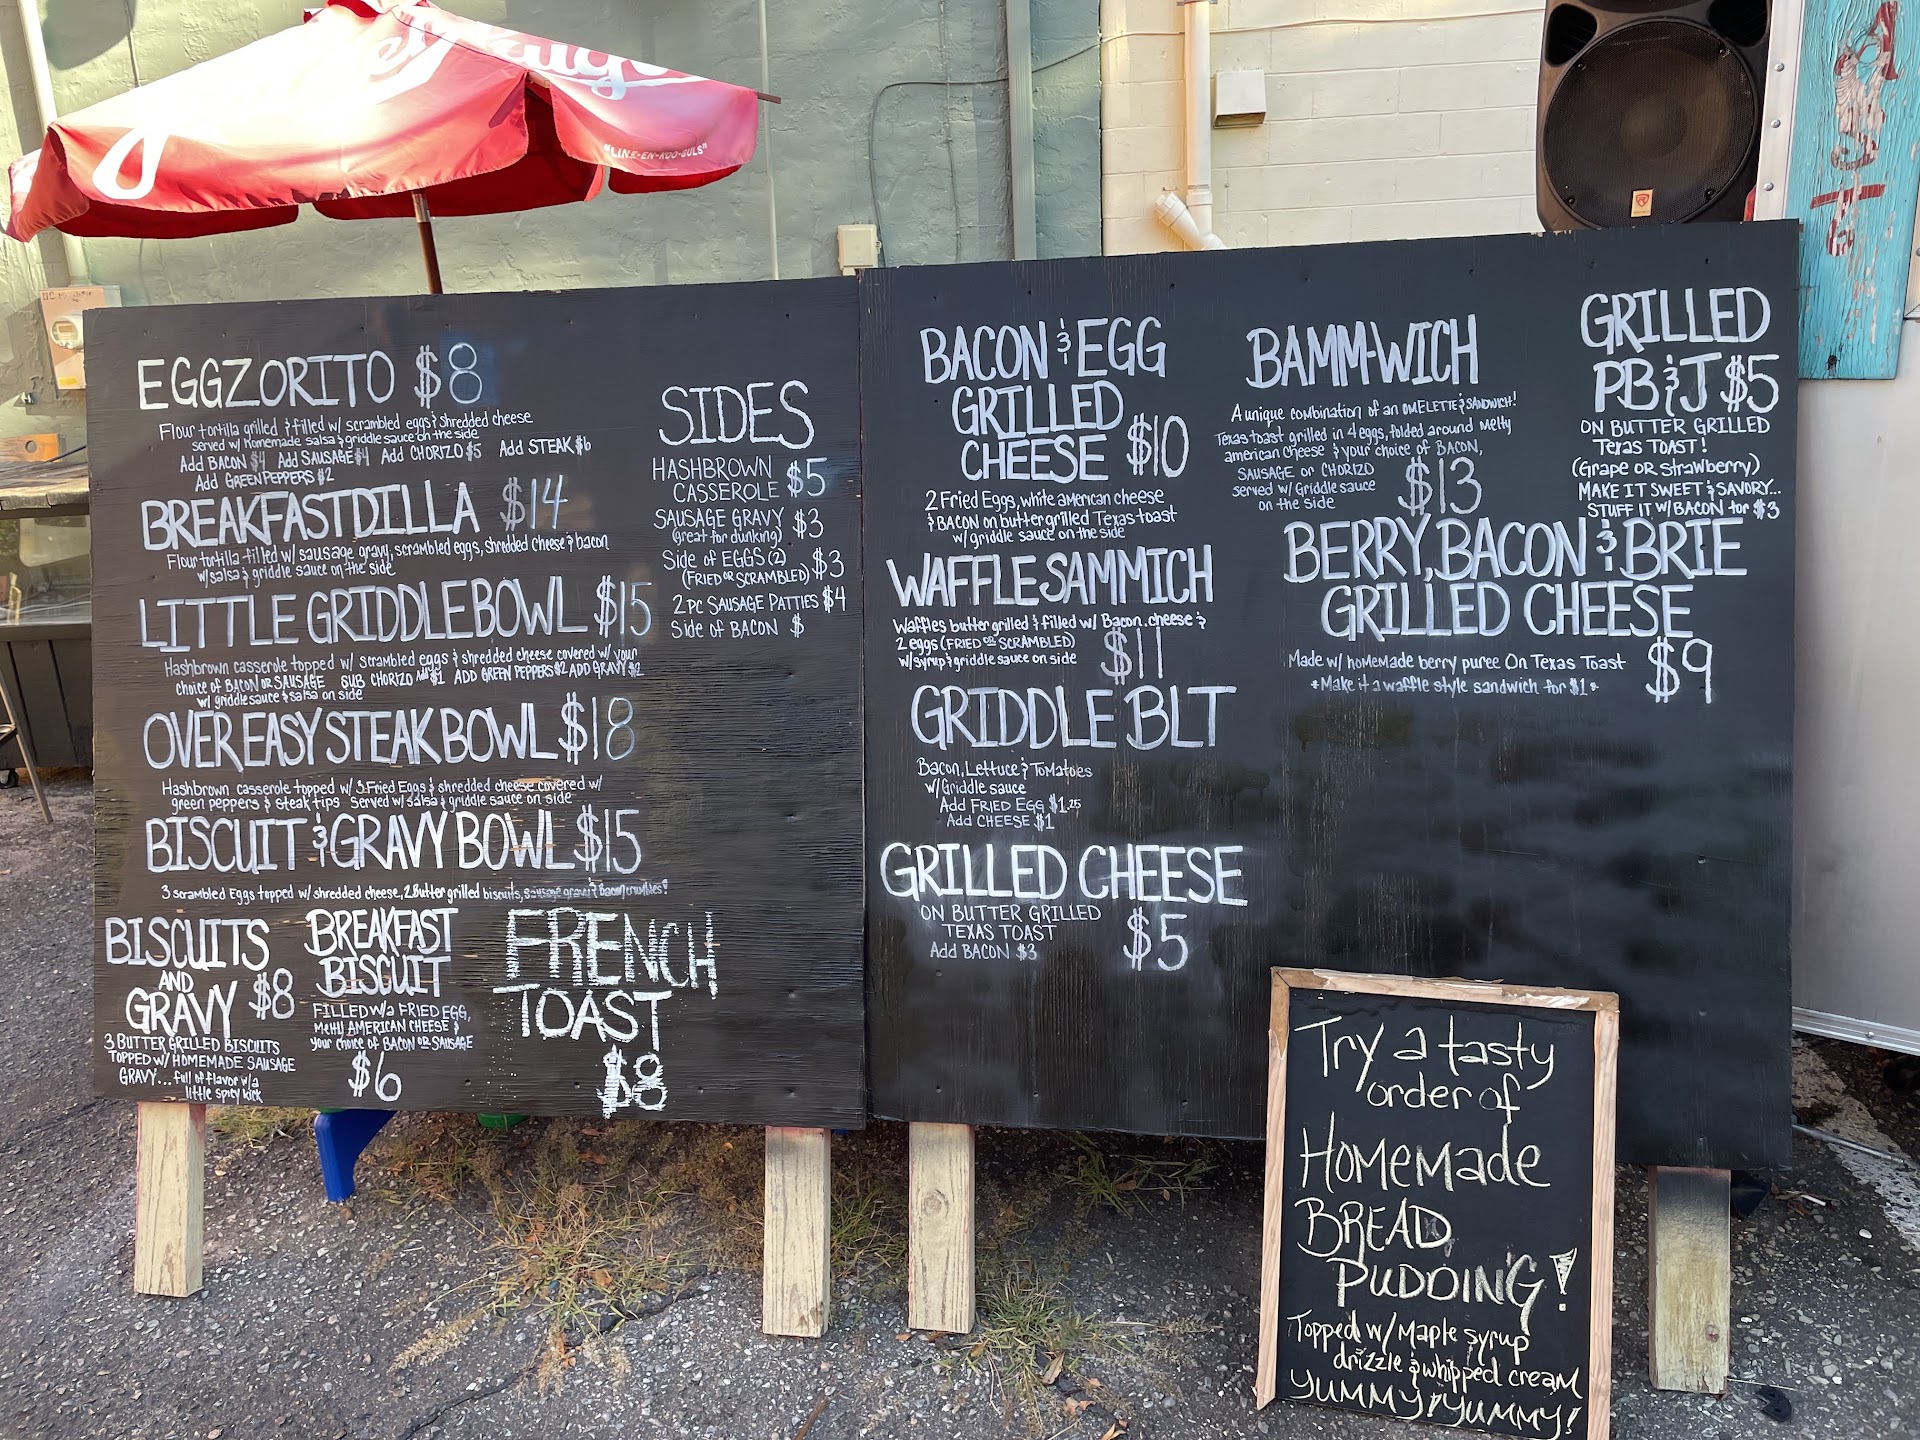 "LINE-EN-KOO-GULS"
EGGZORITO $8
Flour tortilla grilled & filled w/ scrambled eggs & shredded cheese
served w/ Homemade salsa & griddle sauce on the side
Add BACON $4 Add SAUSAGE $4 Add CHORIZO $5 Add STEAK $6
Add GREEN PEPPERS $2
BREAKFASTDILLA $14
Flour tortilla filled w/ sausage gravy, scrambled eggs, shredded cheese & bacon
w/ salsa & griddle sauce on the side
LITTLE GRIDDLE BOWL $15
Hashbrown casserole topped w/ scrambled eggs & shredded cheese covered w/ your
choice of BACON OR SAUSAGE SUB CHORIZO Add $1 ADD GREEN PEPPERS $2 ADD GRAVY $2
w/ griddle sauce & salsa on side
OVER EASY STEAK BOWL $18
Hashbrown casserole topped w/ 3 Fried Eggs & shredded cheese covered w/
green peppers & steak tips Served w/ salsa & griddle sauce on side
BISCUIT & GRAVY BOWL $15
3 scrambled Eggs topped w/ shredded cheese, 2 Butter grilled biscuits, sausage gravy & Bacon crumbles!
BISCUITS
AND
GRAVY $8
3 BUTTER GRILLED BISCUITS
TOPPED w/ HOMEMADE SAUSAGE
GRAVY... full of flavor w/a
little spicy kick
BREAKFAST
BISCUIT
FILLED w/a FRIED EGG,
Melty AMERICAN CHEESE &
your choice of BACON OR SAUSAGE
$6
FRENCH
TOAST
$8
SIDES
HASHBROWN
CASSEROLE $5
SAUSAGE GRAVY $3
(Great for dunking)
Side of EGGS (2) $3
(FRIED OR SCRAMBLED)
2 PC SAUSAGE PATTIES $4
Side of BACON $
BACON & EGG
GRILLED
CHEESE $10
2 Fried Eggs, white american cheese
& BACON on butter grilled Texas toast
w/ griddle sauce on the side
WAFFLE SAMMICH
Waffles butter grilled & filled w/ Bacon, cheese &
2 eggs (FRIED OR SCRAMBLED)
w/ syrup & griddle sauce on side
$11
GRIDDLE BLT
Bacon, Lettuce & Tomatoes
w/ Griddle sauce
Add FRIED EGG $1.25
Add CHEESE $1
GRILLED CHEESE
ON BUTTER GRILLED
TEXAS TOAST
Add BACON $3
$5
BAMM-WICH
A unique combination of an OMELETTE & SANDWICH!
Texas toast grilled in 4 eggs, folded around melty
american cheese & your choice of BACON,
SAUSAGE OR CHORIZO
served w/ Griddle sauce
on the side
$13
GRILLED
PB & J $5
ON BUTTER GRILLED
Texas TOAST!
(Grape OR Strawberry)
MAKE IT SWEET & SAVORY...
STUFF IT w/ BACON for $3
BERRY, BACON & BRIE
GRILLED CHEESE
Made w/ homemade berry puree On Texas Toast
*Make it a waffle style sandwich for $1*
$9
Try a tasty
order of
HomeMade
BREAD
PUDDING!
Topped w/ Maple syrup
drizzle & whipped cream
YUMMY! YUMMY!